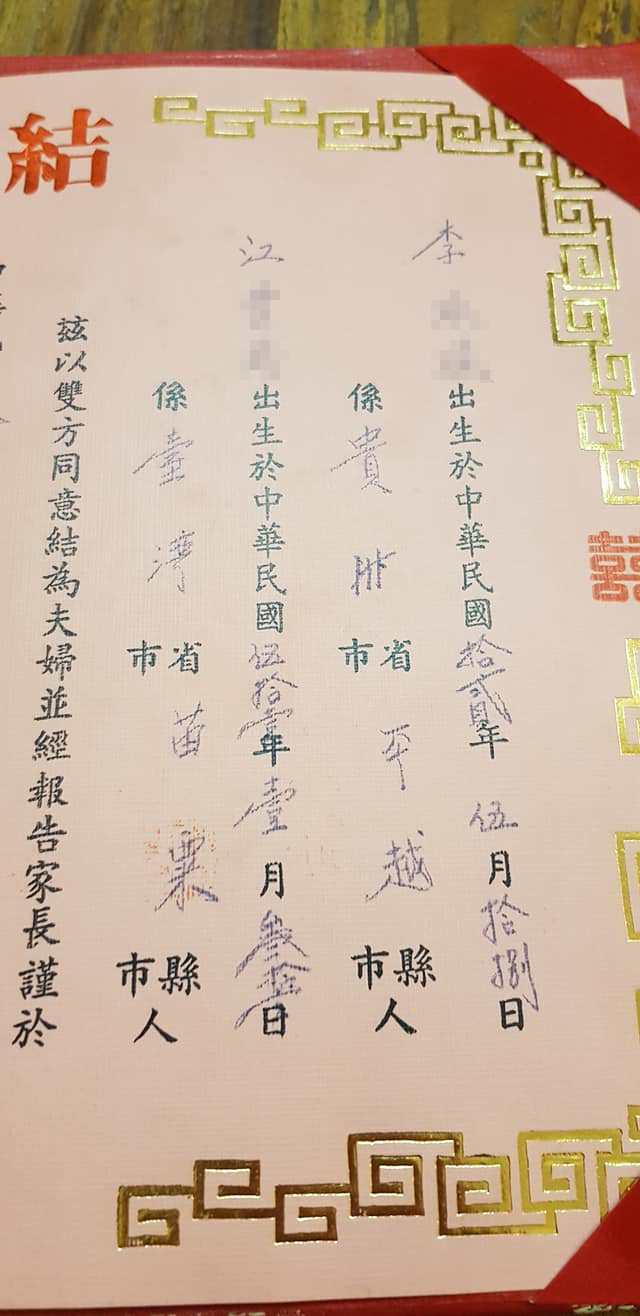 結
囍
李
出生於中華民國拾貳年伍月拾捌日
係貴州省市平越縣市人
江
出生於中華民國伍拾壹年壹月叁日
係臺灣省市苗栗縣市人
茲以雙方同意結為夫婦並經報告家長謹於